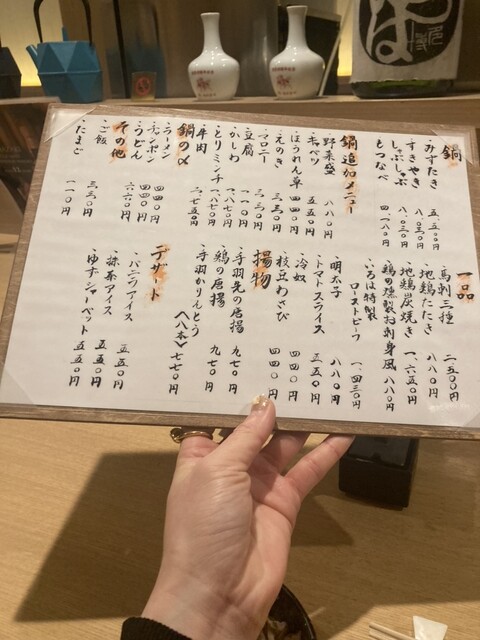 鍋
・みずたき 五、五〇〇円
・すきやき 八、〇三〇円
・しゃぶしゃぶ 八、〇三〇円
・もつなべ 四、一八〇円
鍋追加メニュー
・野菜盛 八八〇円
・キャベツ 五五〇円
・ほうれん草 四四〇円
・えのき 三三〇円
・マロニー 三三〇円
・豆腐 一一〇円
・かしわ 一、八七〇円
・とりミンチ 一、八七〇円
・牛肉 二、七五〇円
鍋の〆
・ラーメン 四四〇円
・チャンポン 四四〇円
・うどん 六六〇円
その他
・ご飯 三三〇円
・たまご 一一〇円
一品
・馬刺三種 二、五〇〇円
・地鶏たたき 八八〇円
・地鶏炭焼き 一、六五〇円
・鶏の燻製お刺身風 八八〇円
・いろは特製ローストビーフ 一、四三〇円
・明太子 八八〇円
・トマトスライス 五五〇円
・冷奴 四四〇円
・枝豆わさび 四四〇円
揚物
・手羽先の唐揚 九七〇円
・鶏の唐揚 九七〇円
・手羽かりんとう〈八本〉 七七〇円
デザート
・バニラアイス 五五〇円
・抹茶アイス 五五〇円
・ゆずシャーベット 五五〇円